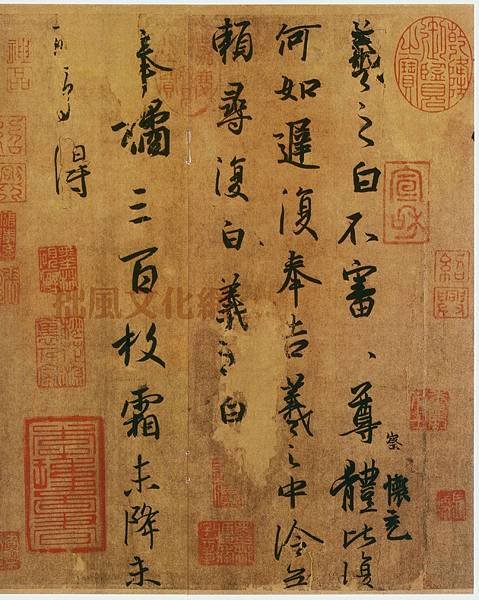 乾隆御覽之寶
羲之白不審、尊體比復
察
懷充
何如遲復奉告羲之中冷無
賴尋復白羲之白
奉橘三百枚霜未降未
可多得
宣和
紹興
神品
拙風文化網